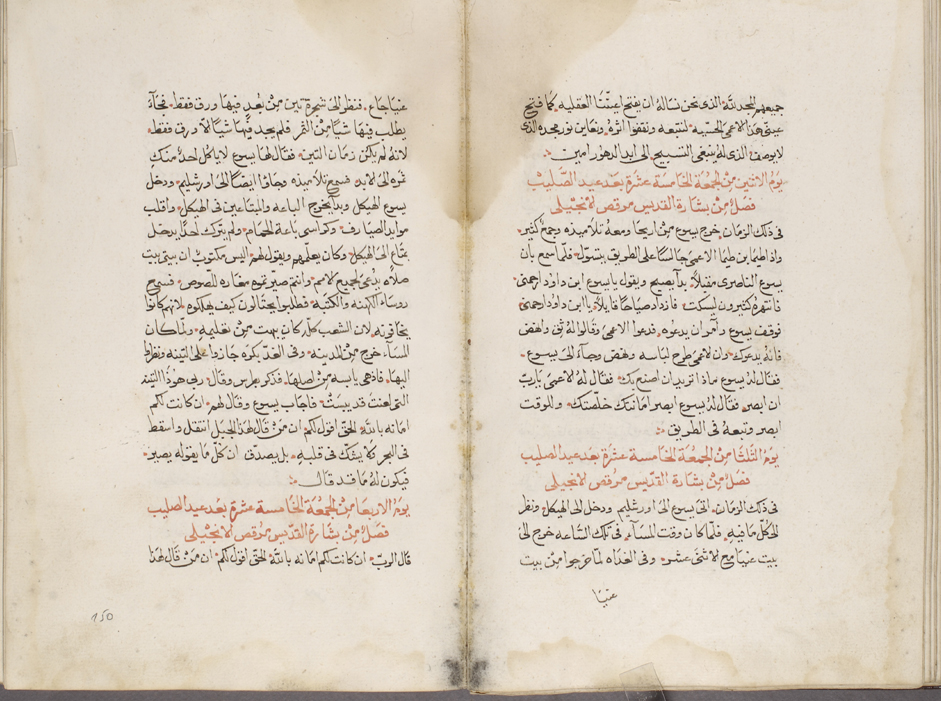 جميعهم المجد لله الذى نحن نساله ان يفتح اعيننا العقليه كما فتح
عينى هذا الاعمى الحسيه لنتبعه ونقفوا اثره ونعاين نور مجده الذى
لا يوصف الذى له ينبغى التسبيح الى ابد الدهور امين
يوم الاثنين من الجمعة الخامسة عشرة بعد عيد الصليب
فصل من بشارة القديس مرقص الانجيلى
فى ذلك الزمان خرج يسوع من اريحا ومعه تلاميذه وجمع كثير
واذا طيما ابن طيما الاعمى جالسا على الطريق يتسول فلما سمع بان
يسوع الناصرى مقبلا بدا يصيح ويقول يا يسوع ابن داود ارحمنى
فانتهره كثيرون ليسكت فازداد صياحا قايلا يا ابن داود ارحمنى
فوقف يسوع وامر ان يدعوه فدعوا الاعمى وقالوا له ثق وانهض
فانه يدعوك وان الاعمى طرح لباسه ونهض وجاء الى يسوع
فقال له يسوع ماذا تريد ان اصنع بك فقال له الاعمى يا رب
ان ابصر فقال له يسوع ابصر امانتك خلصتك وللوقت
ابصر وتبعه فى الطريق
يوم الثلثا من الجمعة الخامسة عشرة بعد عيد الصليب
فصل من بشارة القديس مرقص الانجيلى
فى ذلك الزمان اتى يسوع الى اورشليم ودخل الى الهيكل ونظر
الى كل ما فيه فلما كان وقت المسآء فى تلك الساعه خرج الى
بيت عنيا مع الاثنى عشر وفى الغداه لما خرجوا من بيت
عنيا
عنيا جاع فنظر الى شجرة تين من بعد فيها ورق فقط فجآء
يطلب فيها شيا من الثمر فلم يجد فيها شيا الا ورق فقط
لانه لم يكن زمان التين فقال لها يسوع لا ياكل احد منك
ثمره الى الابد فسمع تلاميذه وجاوا ايضا الى اورشليم ودخل
يسوع الهيكل وبدا يخرج الباعه والمبتاعين فى الهيكل واقلب
موايد الصيارف وكراسى باعة الحمام ولم يترك احدا يدخل
بمتاع الى الهيكل وكان يعلمهم ويقول لهم اليس مكتوب ان بيتى بيت
صلاه يدعى لجميع الامم وانتم صيرتموه مغاره للصوص فسمع
روساء الكهنه والكتبه فطلبوا يحتالون كيف يهلكوه لانهم كانوا
يخافونه لان الشعب كله كان يبهت من تعليمه ولما كان
المساء خرج من المدينه وفى الغد بكره جازوا على التينه ونظروا
اليها فاذ هى يابسه من اصلها فذكر بطرس وقال ربى هوذا التينه
التى لعنت قد يبست فاجاب يسوع وقال لهم ان كانت لكم
امانه بالله الحق اقول لكم ان من قال لهذا الجبل انتقل واسقط
فى البحر ولا يشك فى قلبه بل يصدق ان كل ما يقوله يصير
فيكون له ما قد قال
يوم الاربعا من الجمعة الخامسة عشرة بعد عيد الصليب
فصل من بشارة القديس مرقص الانجيلى
قال الرب ان كانت لكم امانه بالله الحق اقول لكم ان من قال لهذا
150